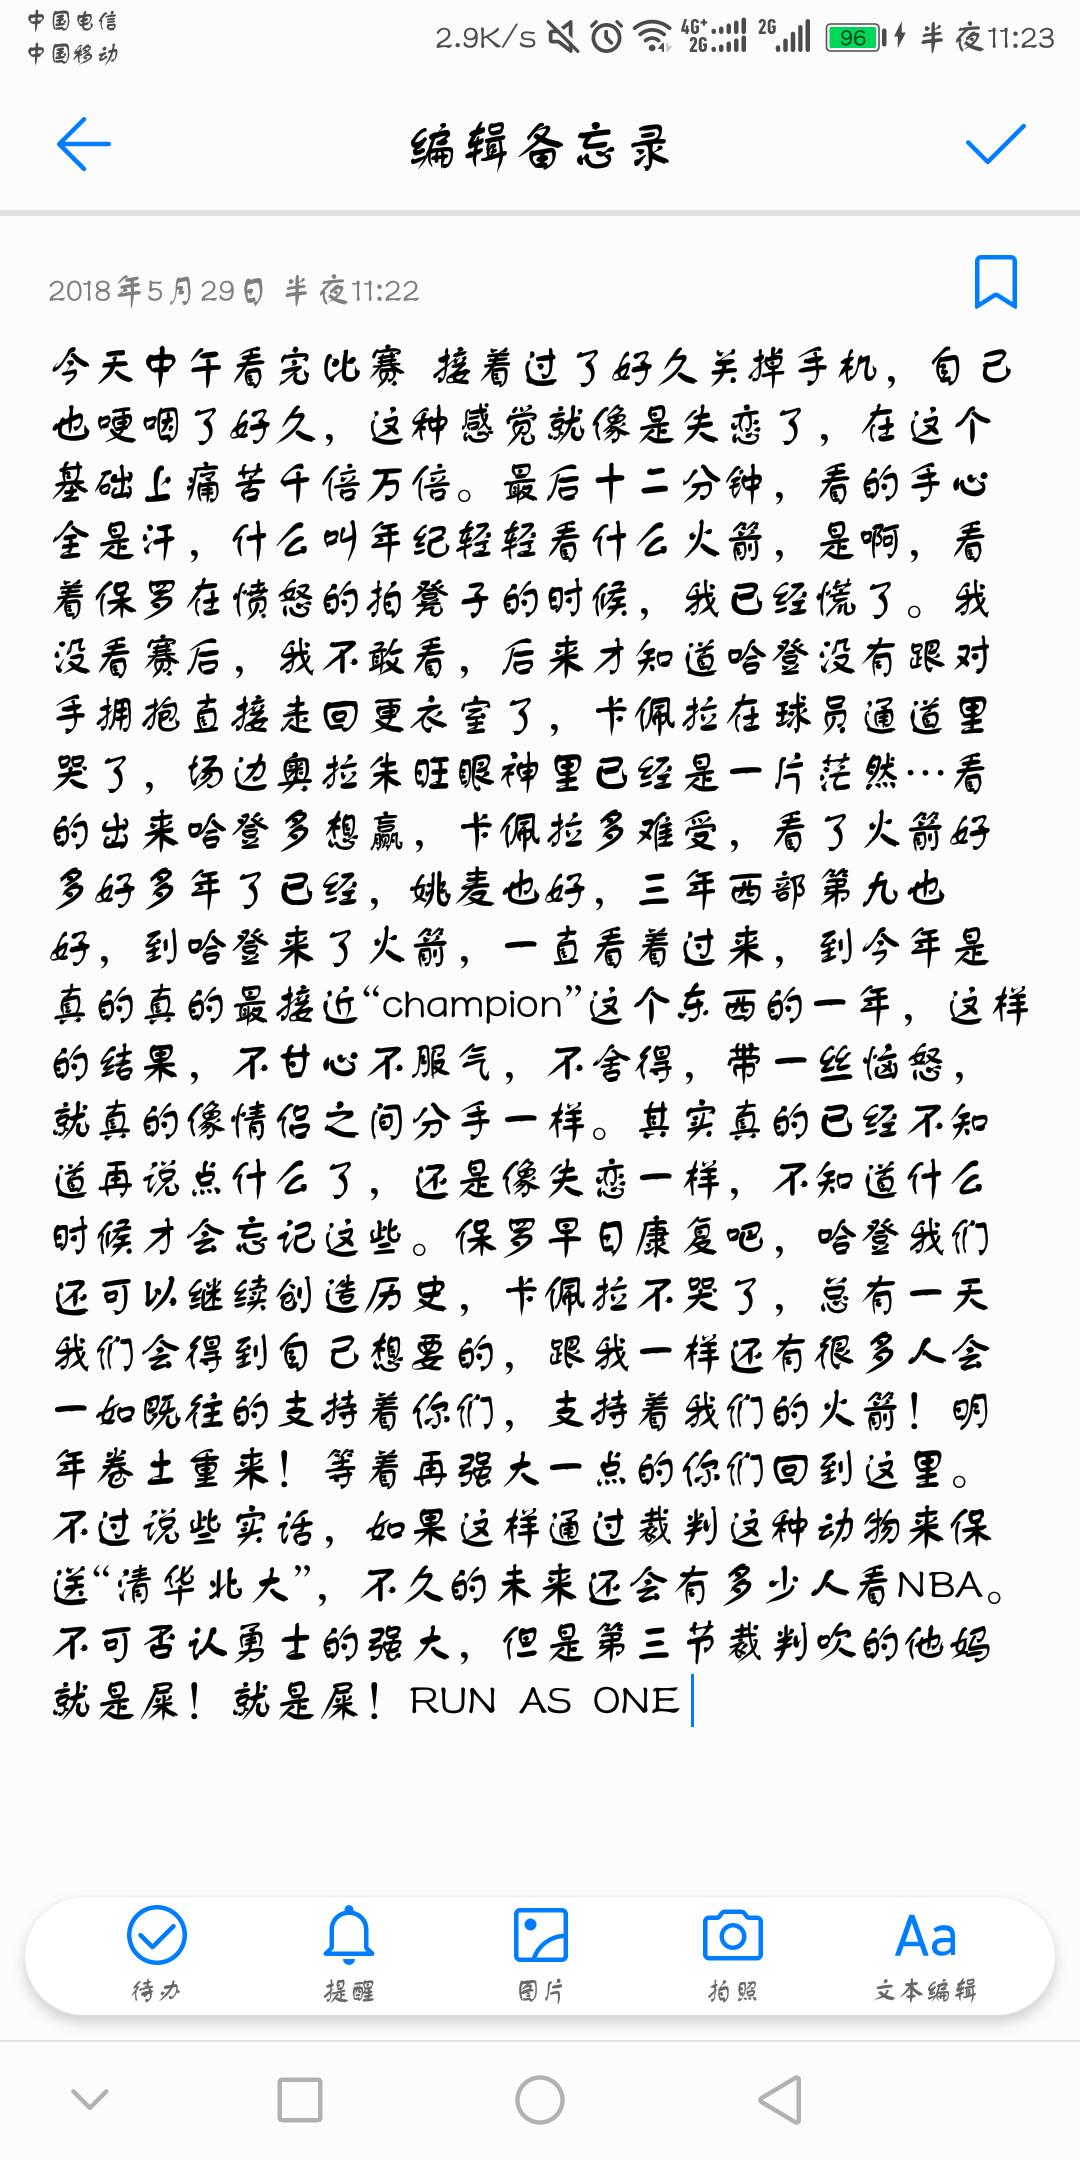 中国电信
中国移动
2.9K/s 4G+ 2G 2G 96 半夜11:23
编辑备忘录
2018年5月29日 半夜11:22
今天中午看完比赛 接着过了好久关掉手机，自己
也哽咽了好久，这种感觉就像是失恋了，在这个
基础上痛苦千倍万倍。最后十二分钟，看的手心
全是汗，什么叫年纪轻轻看什么火箭，是啊，看
着保罗在愤怒的拍凳子的时候，我已经慌了。我
没看赛后，我不敢看，后来才知道哈登没有跟对
手拥抱直接走回更衣室了，卡佩拉在球员通道里
哭了，场边奥拉朱旺眼神里已经是一片茫然…看
的出来哈登多想赢，卡佩拉多难受，看了火箭好
多好多年了已经，姚麦也好，三年西部第九也
好，到哈登来了火箭，一直看着过来，到今年是
真的真的最接近“champion”这个东西的一年，这样
的结果，不甘心不服气，不舍得，带一丝恼怒，
就真的像情侣之间分手一样。其实真的已经不知
道再说点什么了，还是像失恋一样，不知道什么
时候才会忘记这些。保罗早日康复吧，哈登我们
还可以继续创造历史，卡佩拉不哭了，总有一天
我们会得到自己想要的，跟我一样还有很多人会
一如既往的支持着你们，支持着我们的火箭！明
年卷土重来！等着再强大一点的你们回到这里。
不过说些实话，如果这样通过裁判这种动物来保
送“清华北大”，不久的未来还会有多少人看NBA。
不可否认勇士的强大，但是第三节裁判吹的他妈
就是屎！就是屎！RUN AS ONE
待办 提醒 图片 拍照 文本编辑
Aa